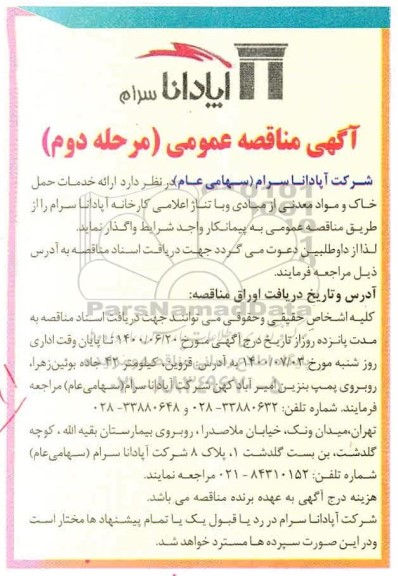 آپادانا سرام
آگهی مناقصه عمومی (مرحله دوم)
شرکت آپادانا سرام (سهامی عام) در نظر دارد ارائه خدمات حمل
خاک و مواد معدنی از مبادی و با تناژ اعلامی کارخانه آپادانا سرام را از
طریق مناقصه عمومی به پیمانکار واجد شرایط واگذار نماید.
لذا از داوطلبین دعوت می گردد جهت دریافت اسناد مناقصه به آدرس
ذیل مراجعه فرمایند.
آدرس و تاریخ دریافت اوراق مناقصه:
کلیه اشخاص حقیقی و حقوقی می توانند جهت دریافت اسناد مناقصه به
مدت پانزده روز از تاریخ درج آگهی مورخ ۱۴۰۰/۰۶/۲۰ تا پایان وقت اداری
روز شنبه مورخ ۱۴۰۰/۰۷/۰۳ به آدرس قزوین، کیلومتر ۴۲ جاده بوئین زهرا،
روبروی پمپ بنزین امیرآباد کهن شرکت آپادانا سرام (سهامی عام) مراجعه
فرمایند. شماره تلفن: ۳۳۸۸۰۶۳۲- ۰۲۸ و ۳۳۸۸۰۶۴۸ - ۰۲۸
تهران، میدان ونک، خیابان ملاصدرا، روبروی بیمارستان بقیه الله، کوچه
گلدشت، بن بست گلدشت ۱، پلاک ۸ شرکت آپادانا سرام (سهامی عام)
شماره تلفن: ۸۴۳۱۰۱۵۲ - ۰۲۱ مراجعه نمایند.
هزینه درج آگهی به عهده برنده مناقصه می باشد.
شرکت آپادانا سرام در رد یا قبول یک یا تمام پیشنهاد ها مختار است
و در این صورت سپرده ها مسترد خواهد شد.
ParsNamadData